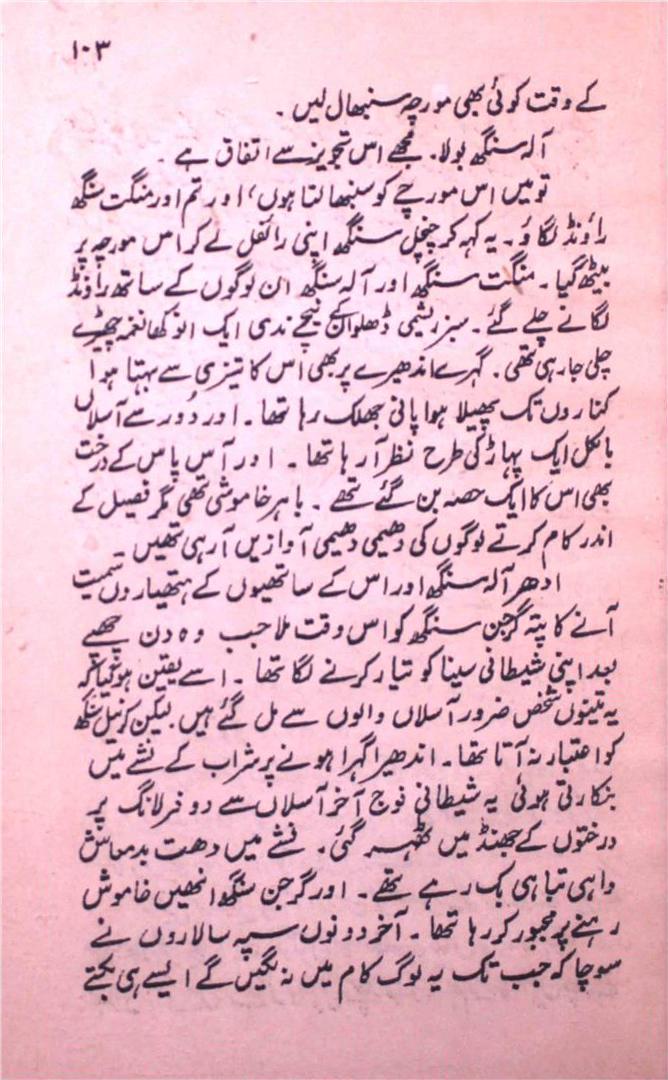 ۱۰۳
کے وقت کوئی بھی مورچہ سنبھال لیں ۔
آلہ سنگھ بولا۔ مجھے اس تجویز سے اتفاق ہے ۔
تو میں اس مورچے کو سنبھالتا ہوں، اور تم اور منگت سنگھ
راؤنڈ لگاؤ ۔ یہ کہہ کر چنچل سنگھ اپنی رائفل لے کر اس مورچہ پر
بیٹھ گیا ۔ منگت سنگھ اور آلہ سنگھ ان لوگوں کے ساتھ راؤنڈ
لگانے چلے گئے ۔ سبز ریشمی ڈھلوان کے نیچے ندی ایک انوکھا نغمہ چھیڑے
چلی جا رہی تھی ۔ گہرے اندھیرے پر بھی اس کا تیزی سے بہتا ہوا
کناروں تک پھیلا ہوا پانی جھلک رہا تھا ۔ اور دُور سے آسلاں
بالکل ایک پہاڑ کی طرح نظر آ رہا تھا ۔ اور آس پاس کے درخت
بھی اس کا ایک حصہ بن گئے تھے ۔ باہر خاموشی تھی مگر فصیل کے
اندر کام کرتے لوگوں کی دھیمی دھیمی آوازیں آ رہی تھیں ۔
ادھر آلہ سنگھ اور اس کے ساتھیوں کے ہتھیاروں سمیت
آنے کا پتہ گرجن سنگھ کو اس وقت ملا جب وہ دن چھپے
بعد اپنی شیطانی سینا کو تیار کرنے لگا تھا ۔ اسے یقین ہو گیا کہ
یہ تینوں شخص ضرور آسلاں والوں سے مل گئے ہیں لیکن کرنیل سنگھ
کو اعتبار نہ آتا تھا ۔ اندھیرا گہرا ہونے پر شراب کے نشے میں
بنکارتی ہوئی یہ شیطانی فوج آخر آسلاں سے دو فرلانگ پر
درختوں کے جھنڈ میں ٹھہر گئی ۔ نشے میں دھت بدمعاش
واہی تباہی بک رہے تھے ۔ اور گرجن سنگھ انھیں خاموش
رہنے پر مجبور کر رہا تھا ۔ آخر دونوں سپہ سالاروں نے
سوچا کہ جب تک یہ لوگ کام میں نہ لگیں گے ایسے ہی بکتے